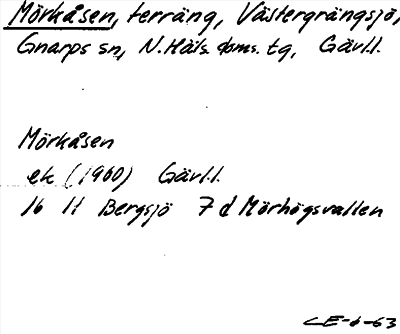 Mörkåsen, terräng, Västergrängsjö,
Gnarps sn, N. Häls. doms. tg, Gävl.l.
Mörkåsen
ek (1960) Gävl.l.
16 H Bergsjö 7 d Mörhögsvallen
CE-6-63